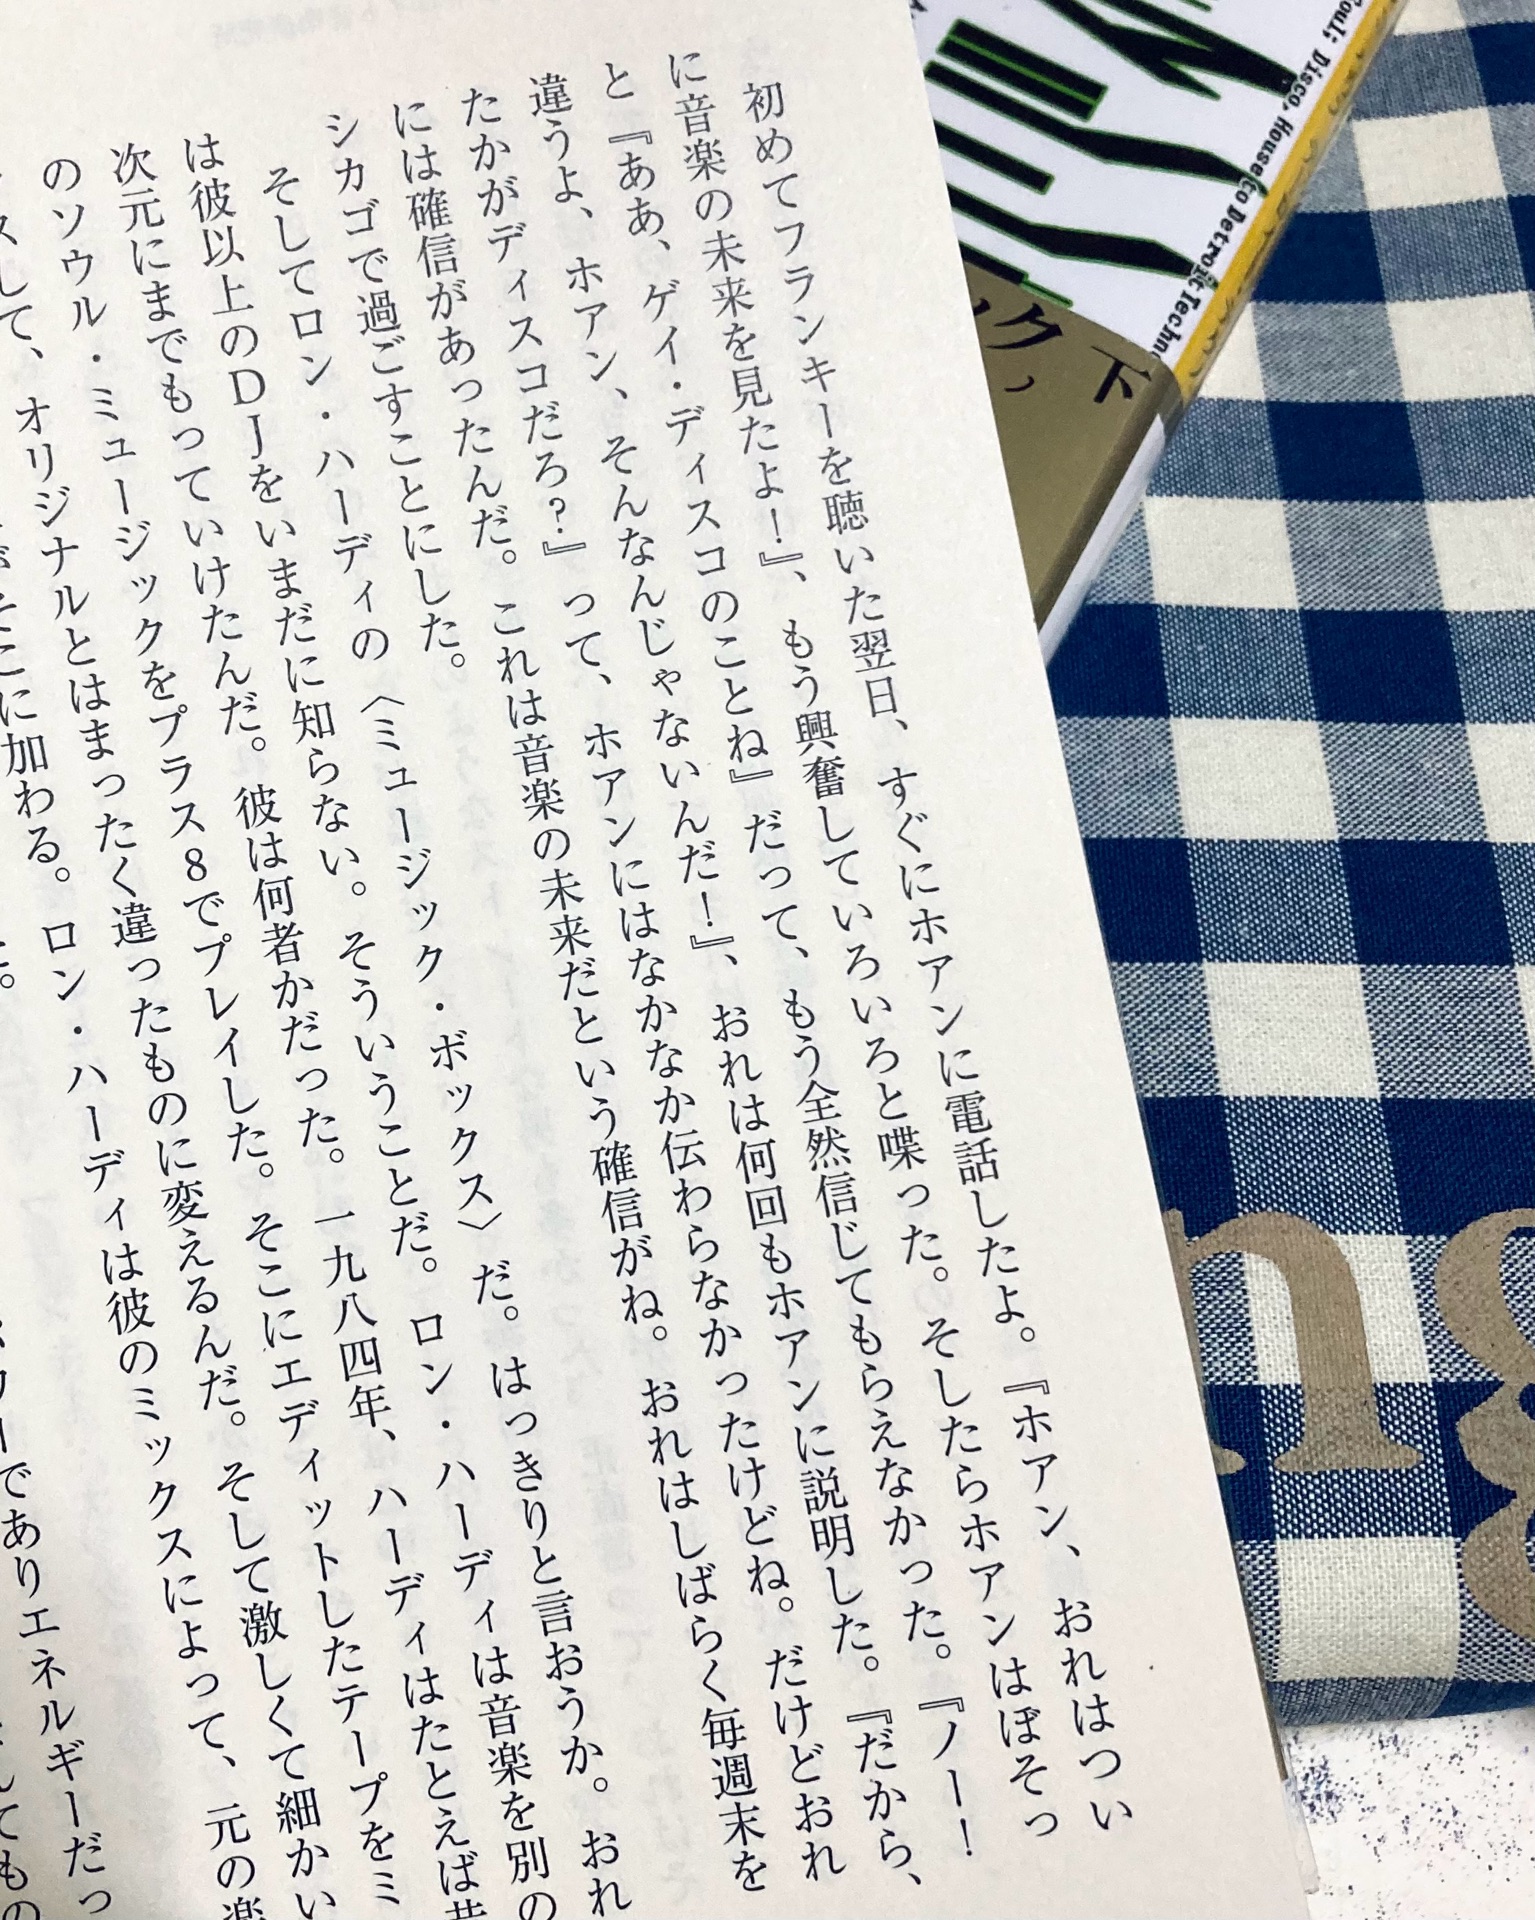 初めてフランキーを聴いた翌日、すぐにホアンに電話したよ。『ホアン、おれはつい
に音楽の未来を見たよ！』、もう興奮していろいろと喋った。そしたらホアンはぼそっ
と『ああ、ゲイ・ディスコのことね』だって、もう全然信じてもらえなかった。『ノー！
違うよ、ホアン、そんなんじゃないんだ！』、おれは何回もホアンに説明した。『だから、
たかがディスコだろ？』って、ホアンにはなかなか伝わらなかったけどね。だけどおれ
には確信があったんだ。これは音楽の未来だという確信がね。おれはしばらく毎週末を
シカゴで過ごすことにした。
そしてロン・ハーディの〈ミュージック・ボックス〉だ。はっきりと言おうか。おれ
は彼以上のＤＪをいまだに知らない。そういうことだ。ロン・ハーディは音楽を別の
次元にまでもっていけたんだ。彼は何者かだった。一九八四年、ハーディはたとえば昔
のソウル・ミュージックをプラス８でプレイした。そこにエディットしたテープをミ
スして、オリジナルとはまったく違ったものに変えるんだ。そして激しくて細かい
そこに加わる。ロン・ハーディは彼のミックスによって、元の楽
でありエネルギーだっ
てもの
Soul: Disco, House to Detroit Techno
ック 下
ng